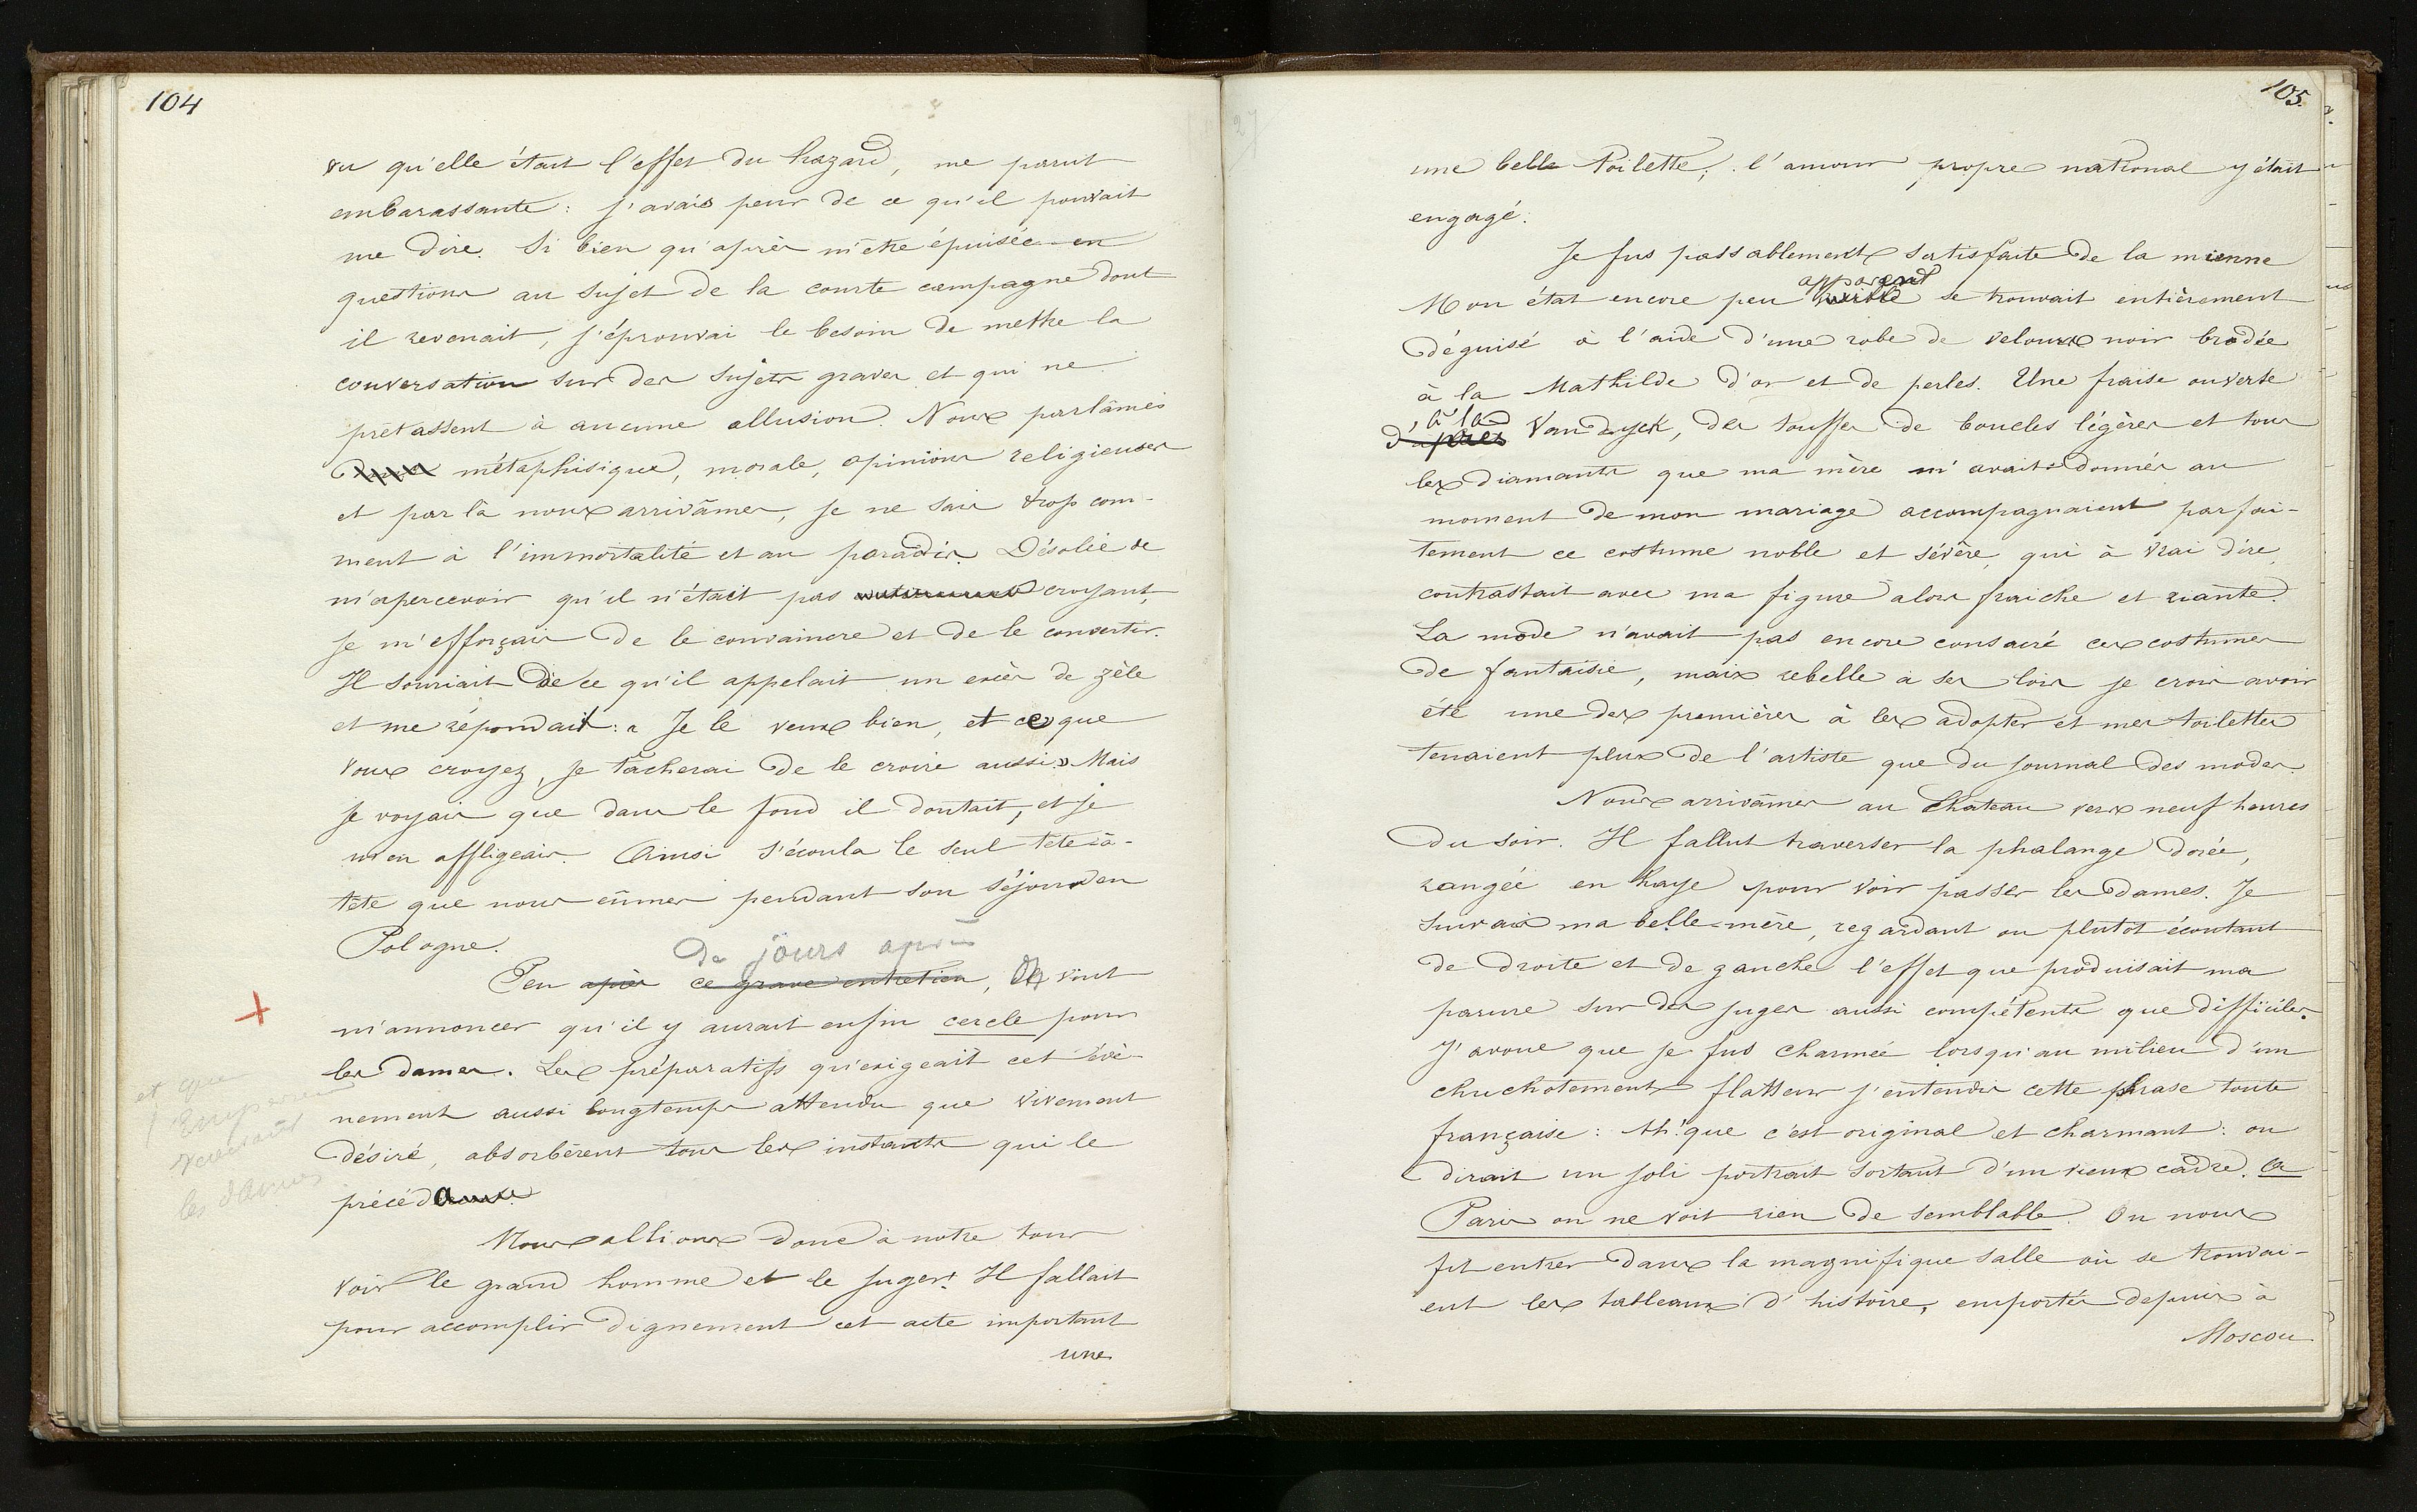 104
vu qu'elle était l'effet du hazard, me parut
embarassante : j'avais peur de ce qu'il pouvait
me dire. Si bien qu'après m'être épuisée en
questions au sujet de la courte campagne dont
il revenait, j'éprouvai le besoin de mettre la
conversation sur des sujets graves et qui ne
prêtassent à aucune allusion. Nous parlâmes
métaphisique, morale, opinions religieuses
et par là nous arrivâmes, je ne sais trop com-
ment à l'immortalité et au paradis. Désolée de
m'apercevoir qu'il n'était pas croyant,
je m'efforçais de le convaincre et de le convertir.
Il souriait de ce qu'il appelait un excès de zèle
et me répondait : « Je le veux bien, et ce que
vous croyez, je tâcherai de le croire aussi » Mais
je voyais que dans le fond il doutait, et je
m'en affligeais. Ainsi s'écoula le seul tête-à-
tête que nous eûmes pendant son séjour en
Pologne.
de jours après
Peu après ce grave entretien, On vint
m'annoncer qu'il y aurait enfin cercle pour
les dames. Les préparatifs qu'exigeait cet évè-
nement aussi longtemps attendu que vivement
désiré, absorbèrent tous les instants qui le
précéda
et que
l'Empereur
recevait
les dames
Nous allions donc à notre tour
voir le grand homme et le juger! Il fallait
pour accomplir dignement cet acte important
une
105.
une belle toilette; l'amour propre national y était
engagé.
Je fus passablement satisfaite de la mienne
apparent
Mon état encore peu visible se trouvait entièrement
déguisé à l'aide d'une robe de velours noir brodée
à la Mathilde d'or et de perles. Une fraise ouverte
, à la
d'après Vandyck, des touffes de boucles légères et tous
les diamants que ma mère m'avait donnés au
moment de mon mariage accompagnaient parfai-
tement ce costume noble et sévère, qui à vrai dire,
contrastait avec ma figure alors fraiche et riante.
La mode n'avait pas encore consacré ces costumes
de fantaisie, mais rebelle à ses lois je crois avoir
été une des premières à les adopter et mes toilettes
tenaient plus de l'artiste que du journal des modes.
Nous arrivâmes au Chateau vers neuf heures
du soir. Il fallut traverser la phalange dorée,
rangée en haye pour voir passer les dames. Je
suivais ma belle-mère, regardant ou plutôt écoutant
de droite et de gauche l'effet que produisait ma
parure sur des juges aussi compétents que difficiles.
J'avoue que je fus charmée lorsqu'au milieu d'un
chuchotement flatteur j'entendis cette phrase toute
française : Ah! que c'est original et charmant : on
dirait un joli portrait sortant d'un vieux cadre. à
Paris on ne voit rien de semblable. On nous
fit entrer dans la magnifique salle où se trouvai-
ent les tableaux d'histoire, emportés depuis à
Moscou